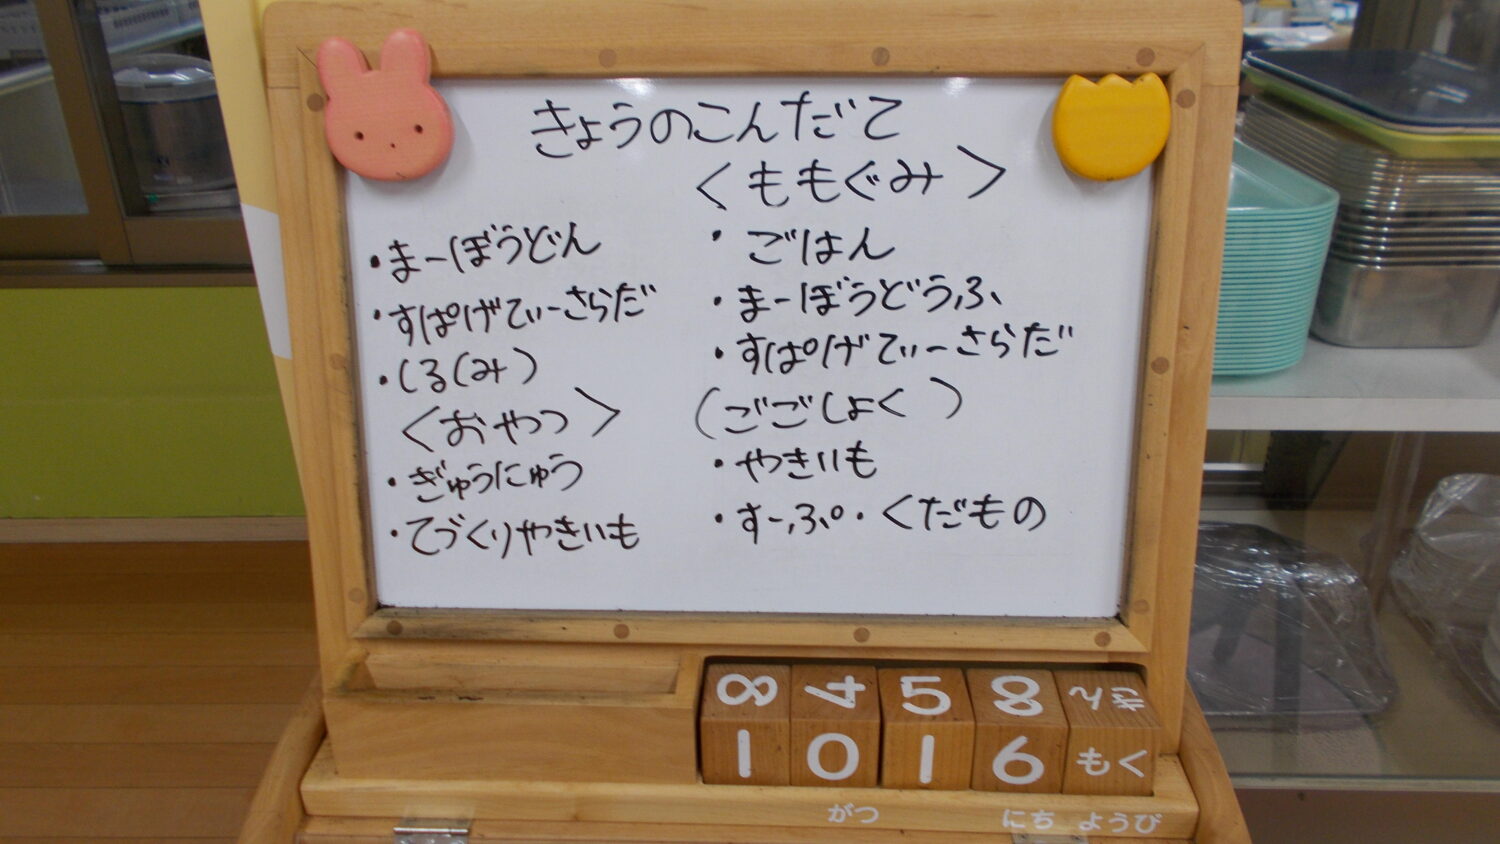 きょうのこんだて
・まーぼうどん
・すぱげてぃーさらだ
・しる(み)
<おやつ>
・ぎゅうにゅう
・てづくりやきいも
<ももぐみ>
・ごはん
・まーぼうどうふ
・すぱげてぃーさらだ
(ごごしょく)
・やきいも
・すーぷ・くだもの
8 4 5 8 きん
1 0 1 6 もく
がつ にち ようび